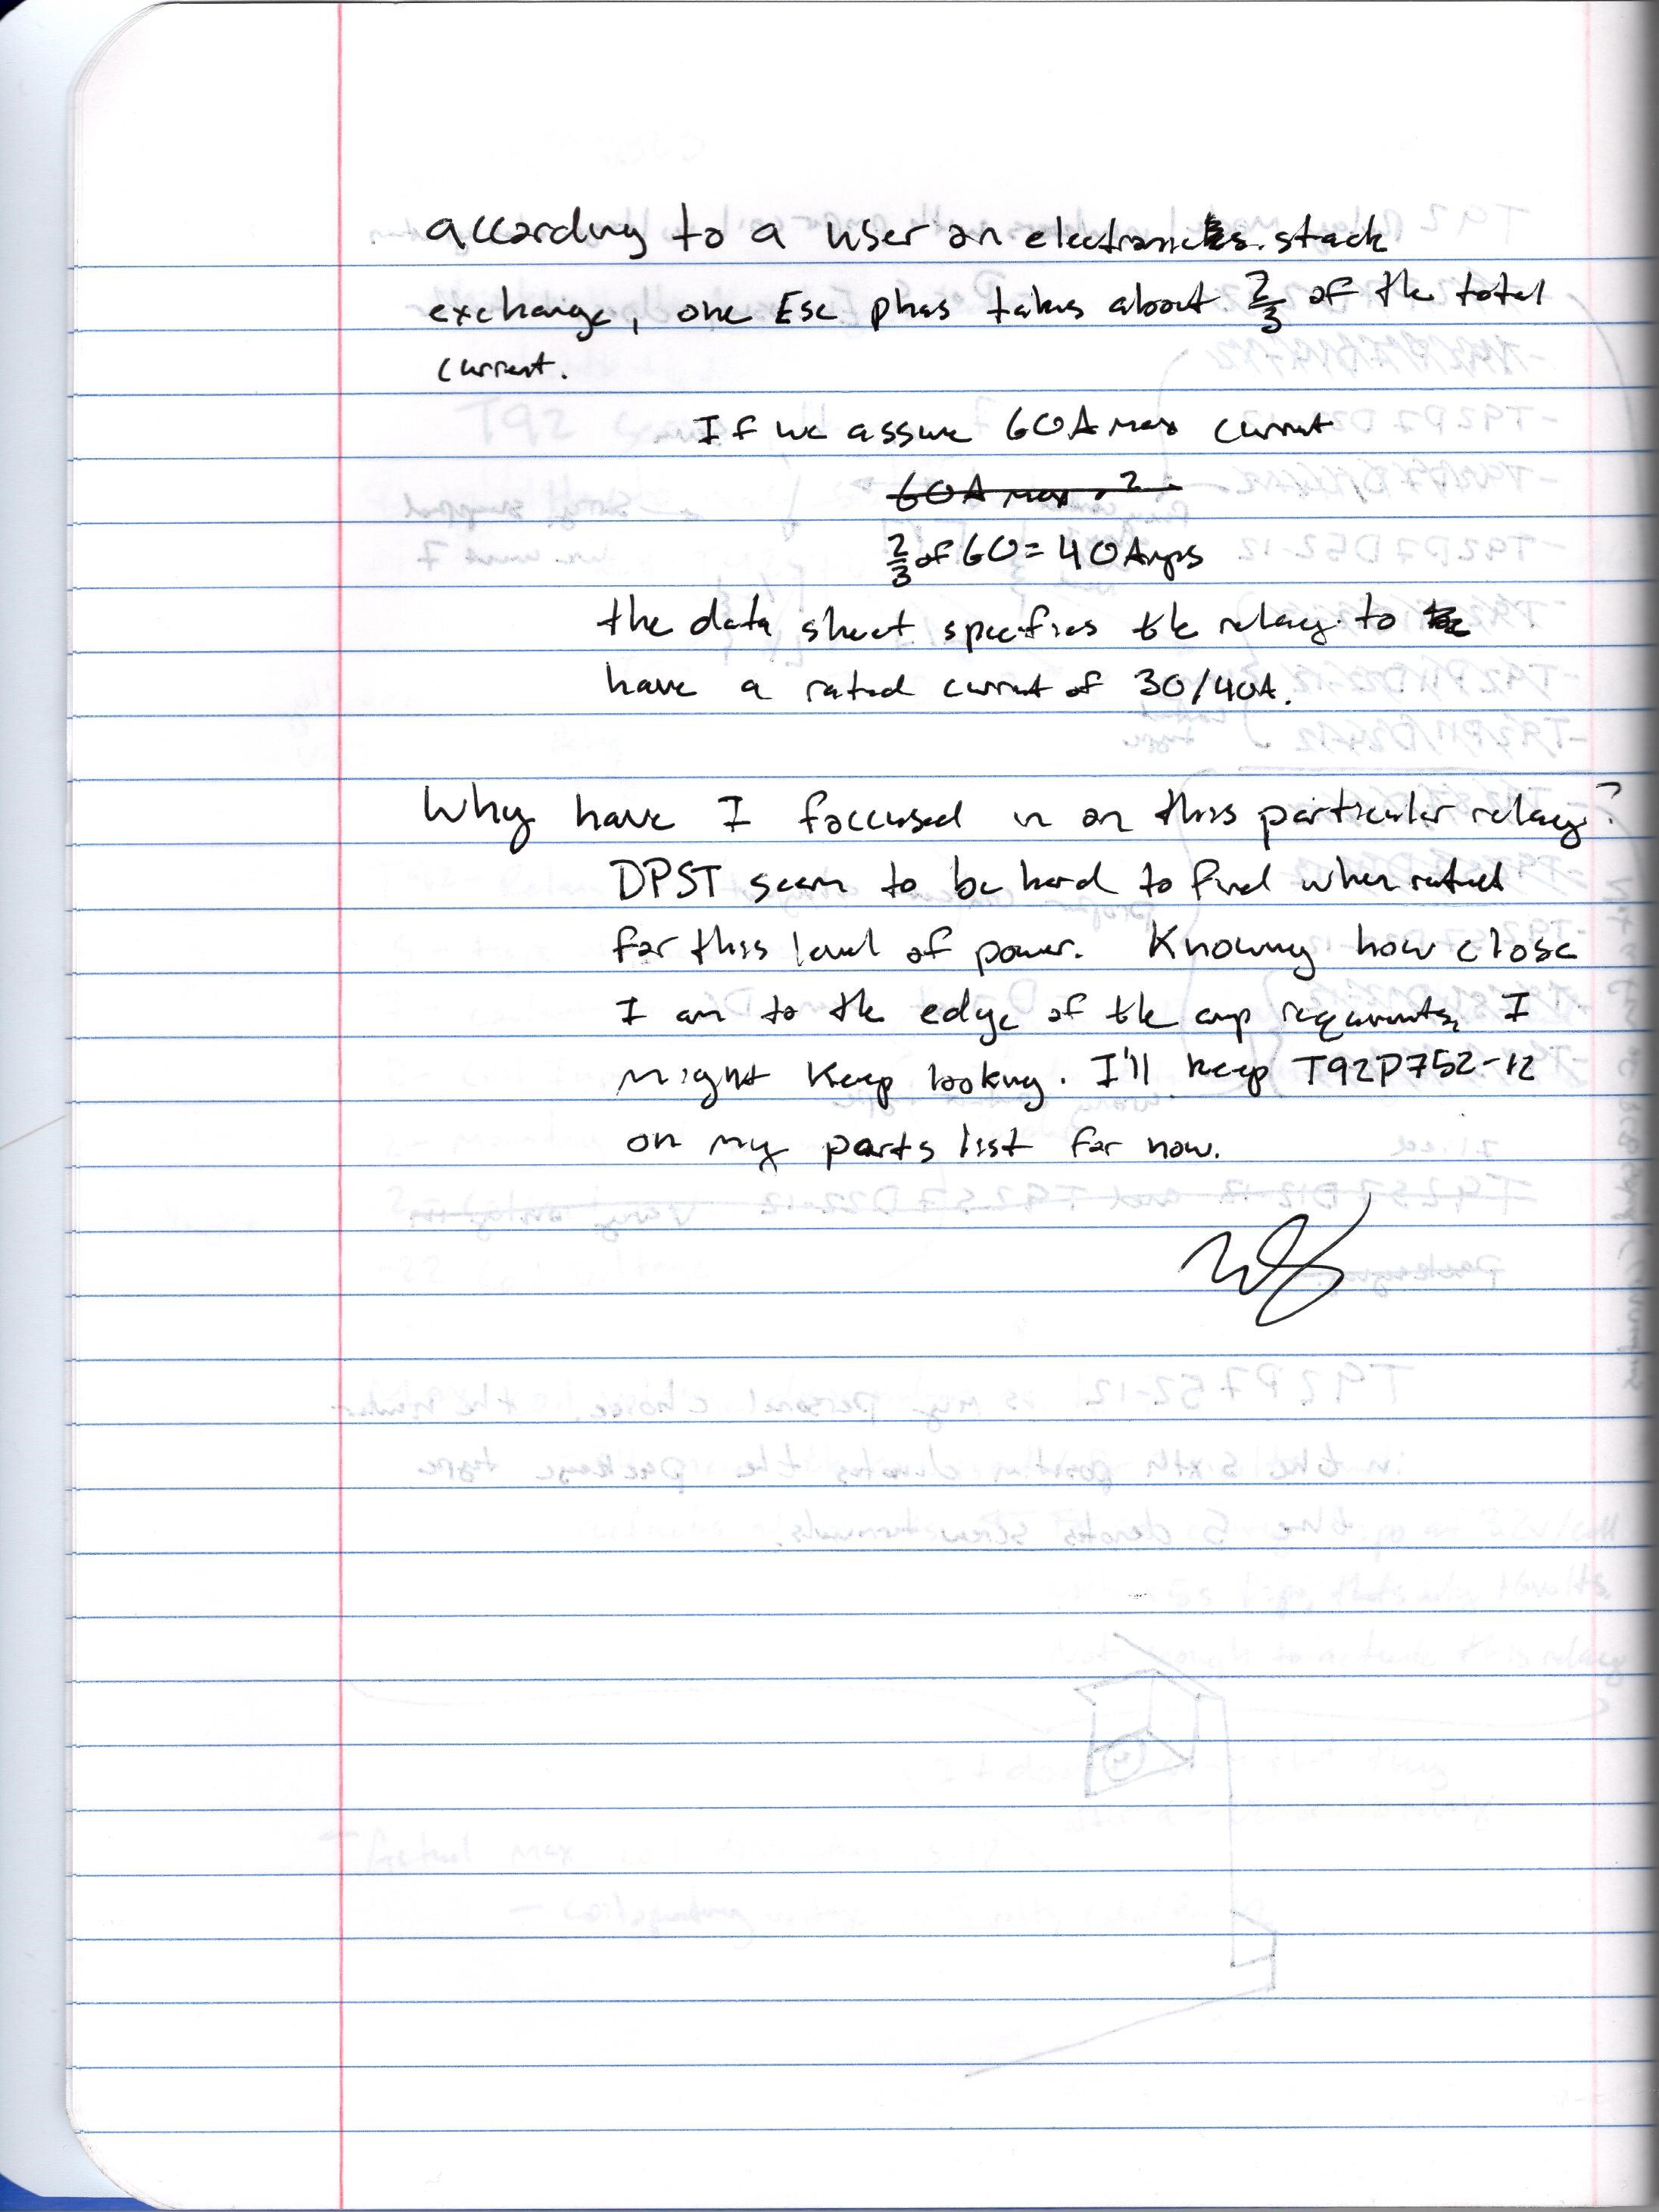 according to a user on electronics.stack
exchange, one Esc phas takes about 2/3 of the total
current.
If we assume 60A max current
60A max . 2
2/3 of 60 = 40 Amps
the data sheet specifies the relay to
have a rated current of 30/40A.
Why have I foccused in on this particular relay?
DPST seem to be hard to find when rated
for this level of power. Knowing how close
I am to the edge of the amp requirments, I
might keep looking. I'll keep T92P752-12
on my parts list for now.